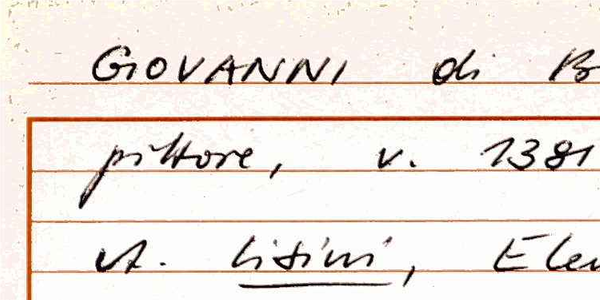 GIOVANNI di B
pittore, v. 1381
cf. Lisini, Elen